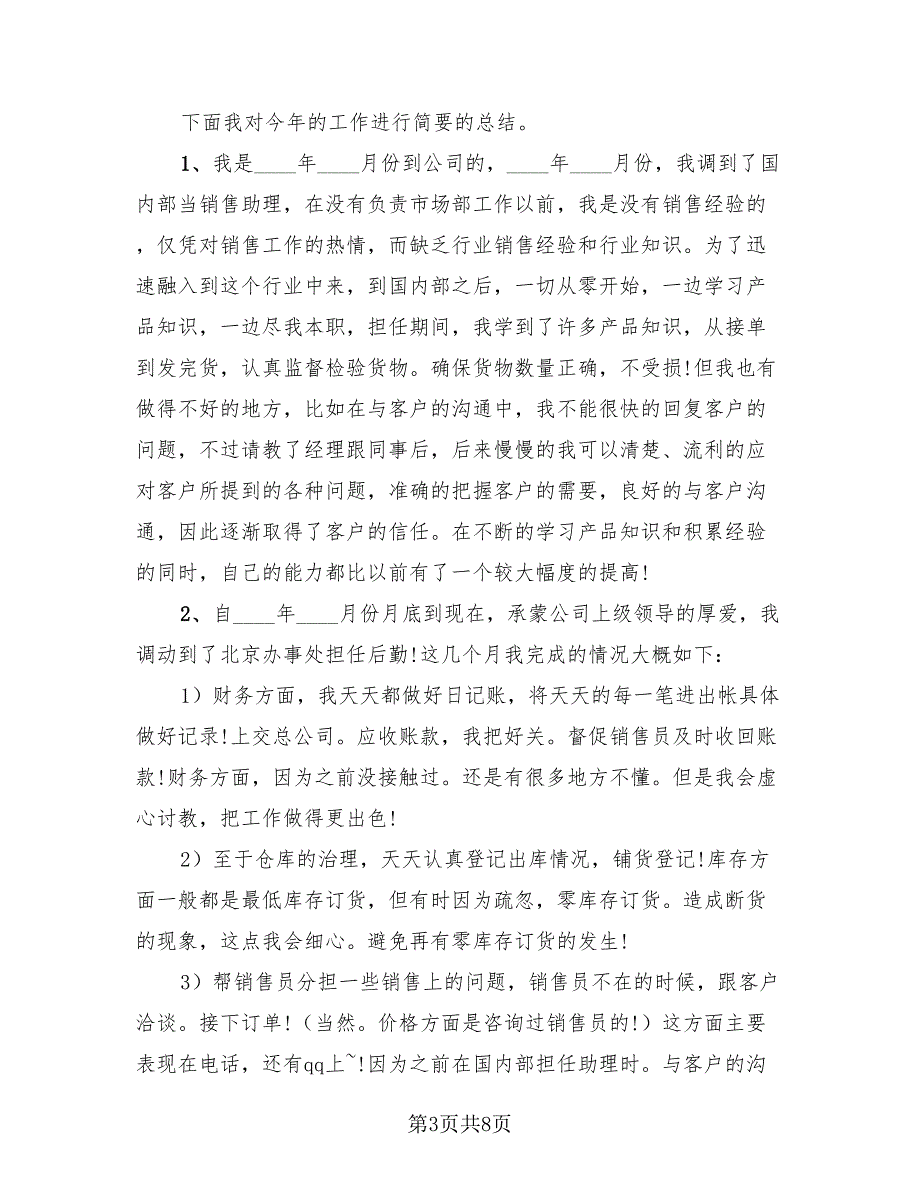 下面我对今年的工作进行简要的总结。
1、我是____年____月份到公司的，____年____月份，我调到了国
内部当销售助理，在没有负责市场部工作以前，我是没有销售经验的
，仅凭对销售工作的热情，而缺乏行业销售经验和行业知识。为了迅
速融入到这个行业中来，到国内部之后，一切从零开始，一边学习产
品知识，一边尽我本职，担任期间，我学到了许多产品知识，从接单
到发完货，认真监督检验货物。确保货物数量正确，不受损!但我也有
做得不好的地方，比如在与客户的沟通中，我不能很快的回复客户的
问题，不过请教了经理跟同事后，后来慢慢的我可以清楚、流利的应
对客户所提到的各种问题，准确的把握客户的需要，良好的与客户沟
通，因此逐渐取得了客户的信任。在不断的学习产品知识和积累经验
的同时，自己的能力都比以前有了一个较大幅度的提高!
2、自____年____月份月底到现在，承蒙公司上级领导的厚爱，我
调动到了北京办事处担任后勤!这几个月我完成的情况大概如下：
1）财务方面，我天天都做好日记账，将天天的每一笔进出帐具体
做好记录!上交总公司。应收账款，我把好关。督促销售员及时收回账
款!财务方面，因为之前没接触过。还是有很多地方不懂。但是我会虚
心讨教，把工作做得更出色!
2）至于仓库的治理，天天认真登记出库情况，铺货登记!库存方
面一般都是最低库存订货，但有时因为疏忽，零库存订货。造成断货
的现象，这点我会细心。避免再有零库存订货的发生!
3）帮销售员分担一些销售上的问题，销售员不在的时候，跟客户
洽谈。接下订单!（当然。价格方面是咨询过销售员的!）这方面主要
表现在电话，还有qq上~!因为之前在国内部担任助理时。与客户的沟
第3页共8页